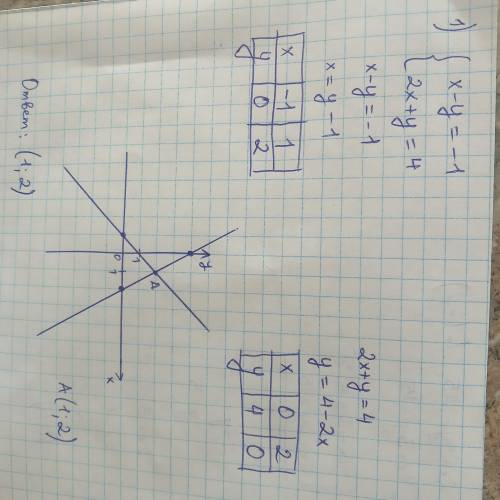 1) { x-y=-1
2x+y=4
x-y=-1
x=y-1
x -1 1
y 0 2
2x+y=4
y=4-2x
x 0 2
y 4 0
y
A
1
0 1
x
A(1;2)
Ответ: (1;2)